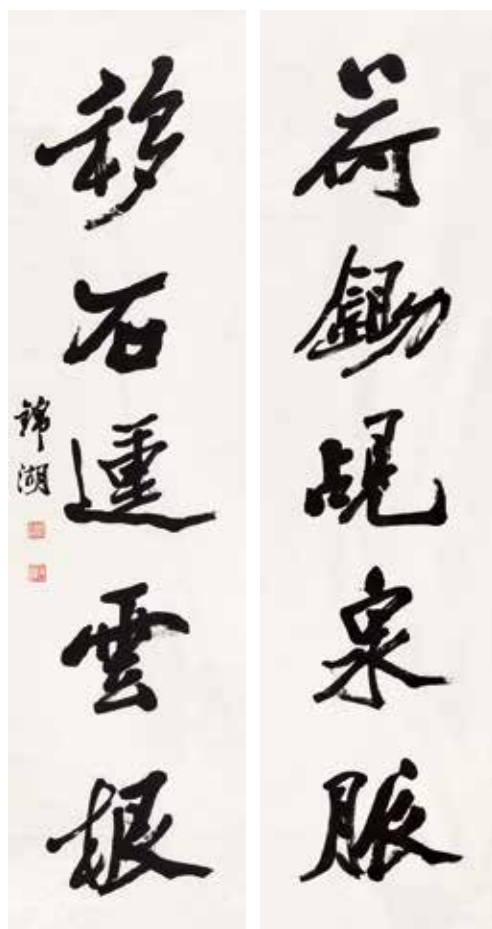 荷鋤覘泉脈
移石𨔝雲根
錦湖